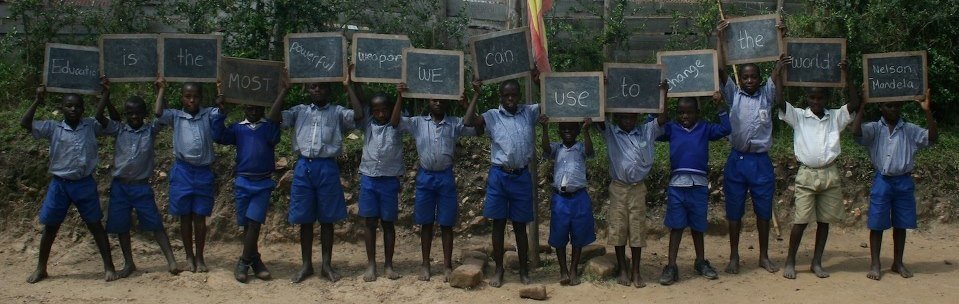 Education is the MOST powerful weapon WE can use to change the world Nelson
Mandela